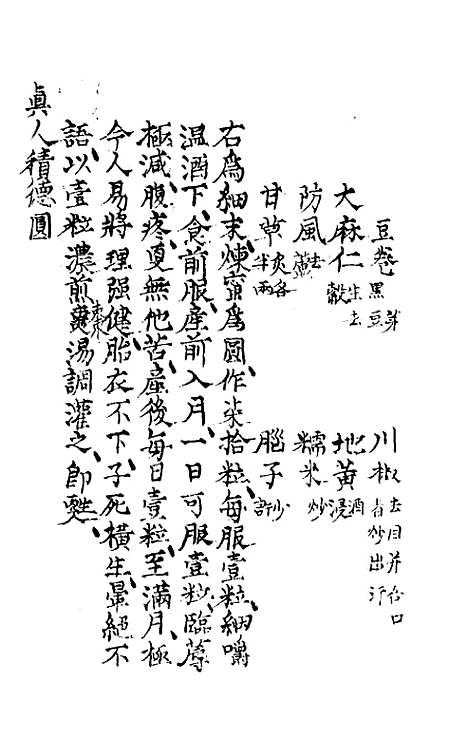 豆卷黑豆芽 川椒去目并合口者炒出汗
大麻仁生去殼 地黃酒浸
防風去蘆 糯米炒
甘草炙各半兩 腦子少許
右爲細末煉蜜爲圓作柒拾粒每服壹粒細嚼
温酒下食前服産前入月一日可服壹粒臨蓐
極減腹疼更無他苦産後每日壹粒至滿月極
令人易將理强健胎衣不下子死橫生暈絕不
語以壹粒濃煎棗湯調灌之即甦
眞人積德圓